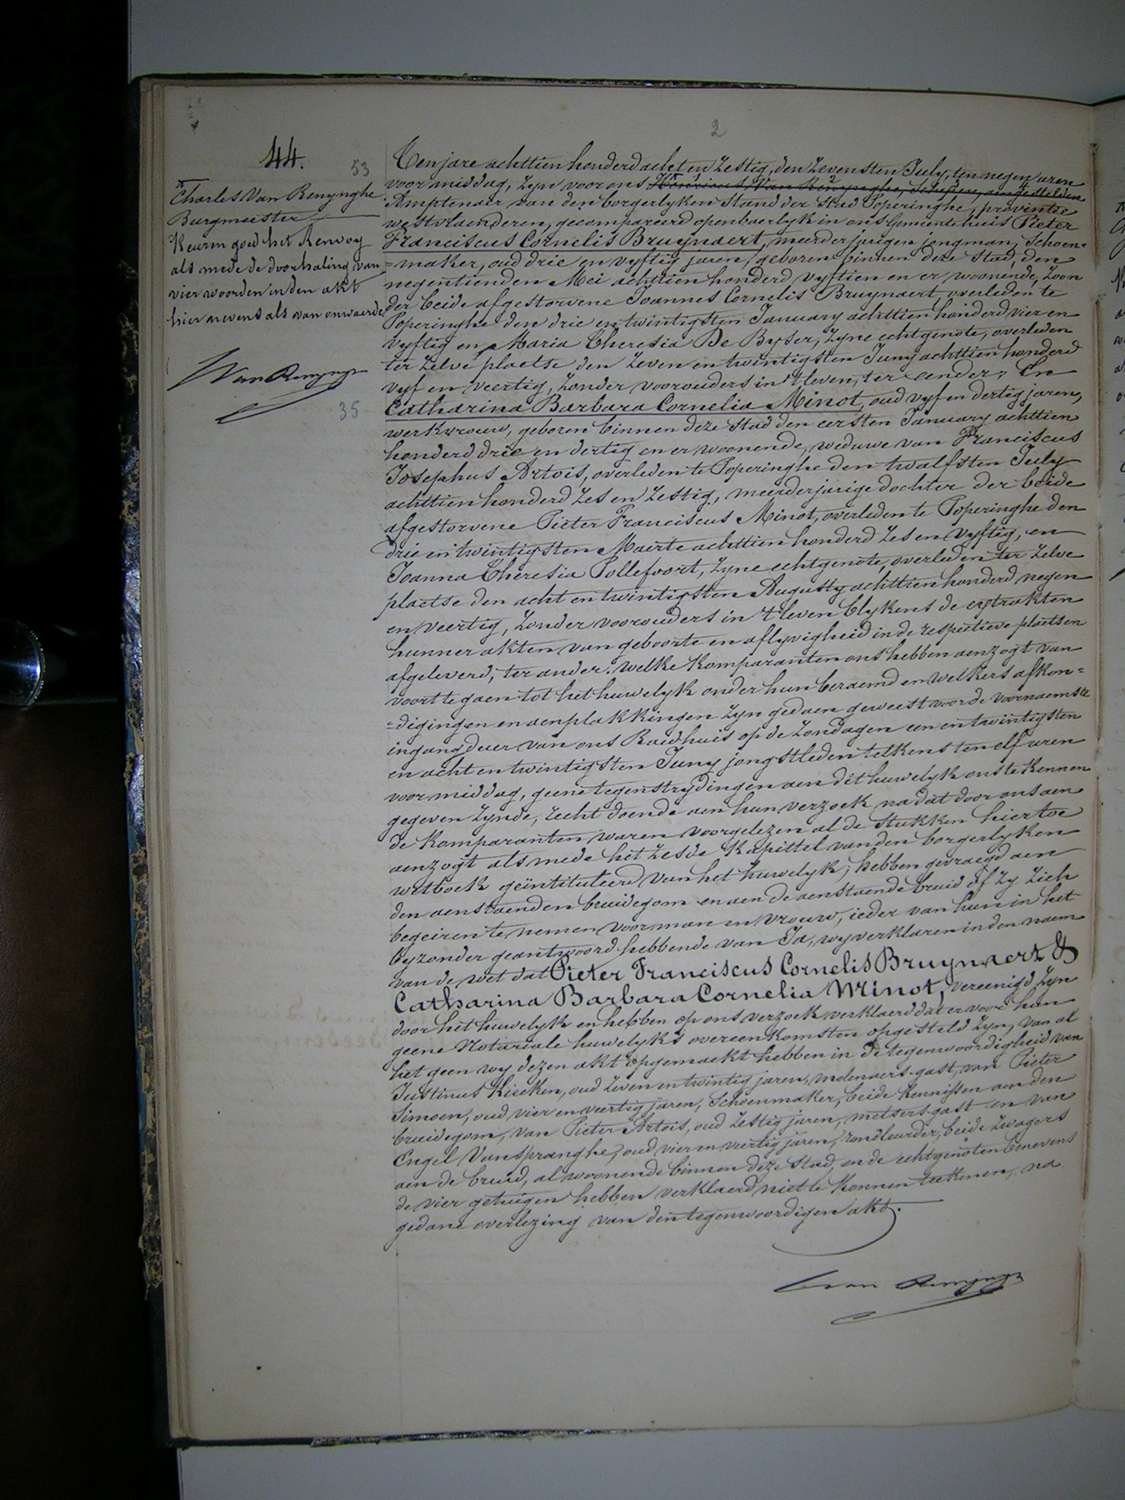 2
44.
53
Charles Van Renynghe
Burgmeister
Keuren goed het Renvoy
als mede de doorhaling van
vier woorden in den akt
hier nevens als van onwaerde
Van Renynghe
35
Ten jare achttien honderd acht en zestig, den zevensten July, ten negen uren
voormiddag, zyn voor ons Henricus Van Renynghe, Schepen,
Amptenaer van den borgerlyken stand der stad Poperinghe, provintie
westvlaenderen, gecompareerd openbaerlyk in ons Gemeentehuis Pieter
Franciscus Cornelis Bruynaert, meerderjarigen jongman, Schoen=
=maker, oud drie en vyftig jaren, geboren binnen deze Stad, den
negentienden Mei achttien honderd vyftien en er woonende, Zoon
der beide afgestorvene Joannes Cornelis Bruynaert, overleden te
Poperinghe den drie en twintigsten January achttien honderd vier en
vyftig en Maria Theresia De Byser, zyne echtgenote, overleden
ter zelve plaetse den zeven en twintigsten Juny achttien honderd
vyf en veertig, zonder voorouders in 't leven, ter eender; En
Catharina Barbara Cornelia Minot, oud vyf en dertig jaren,
werkvrouw, geboren binnen deze stad den eersten January achttien
honderd drie en dertig en er woonende, weduwe van Franciscus
Josephus Artois, overleden te Poperinghe den twalfsten July
achttien honderd zes en zestig, meerderjarige dochter der beide
afgestorvene Pieter Franciscus Minot, overleden te Poperinghe den
drie en twintigsten Maerte achttien honderd zes en vyftig, en
Joanna Theresia Pollefoort, zyne echtgenote, overleden ter zelve
plaetse den acht en twintigsten Augusty achttien honderd negen
en veertig, zonder voorouders in 't leven blykens de extrakten
hunner akten van geboorte en aflyvigheid in de respectieve plaetsen
afgeleverd, ter ander. welke komparanten ons hebben aenzogt van
voort te gaen tot het huwelyk onder hun beraemd en welkers afkon=
=digingen en aenplakkingen zyn gedaen geweest voor de voornaemste
ingangdeur van ons Raedhuis op de zondagen een en twintigsten
en acht en twintigsten Juny jongstleden telkens ten elf uren
voormiddag, geene tegenstrydingen aen dit huwelyk ons te kennen
gegeven zynde, recht doende aen hun verzoek na dat door ons aen
de komparanten waren voorgelezen al de stukken hiertoe
aenzogt als mede het zesde kapittel van den borgerlyken
wetboek geïntituleerd van het huwelyk, hebben gevraegd aen
den aenstaenden bruidegom en aen de aenstaende bruid of zy zich
begeiren te nemen voor man en vrouw, ieder van hun in het
byzonder geantwoord hebbende van Ja, wy verklaren in den naem
van de wet dat Pieter Franciscus Cornelis Bruynaert &
Catharina Barbara Cornelia Minot, vereenigd zyn
door het huwelyk en hebben op ons verzoek verklaerd dat er voor hun
geene Notariale huwelyks overeenkomsten opgesteld zyn, van al
het geen wy dezen akt opgemaekt hebben in de tegenwoordigheid van
Justinus Kiecken, oud zeven en twintig jaren, molenaers-gast, van Pieter
Simoen, oud vier en veertig jaren, Schoenmaker, beide kennissen aen den
bruidegom, van Pieter Artois, oud zestig jaren, metsers-gast en van
Engel Vanspranghe, oud vier en veertig jaren, rondleurder, beide zwagers
aen de bruid, al woonende binnen deze stad, en de echtgenoten benevens
de vier getuigen hebben verklaerd niet te konnen teekenen, na
gedane overlezing van den tegenwoordigen akt.
Van Renynghe